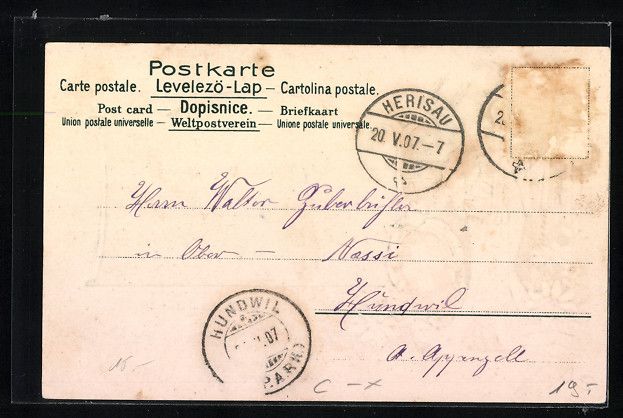 Postkarte
Carte postale. Levelező-Lap – Cartolina postale.
Post card – Dopisnice. – Briefkaart
Union postale universelle – Weltpostverein – Unione postale universale.
HERISAU
20. V.07.–7
Herrn Walter Zuberbühler
in Ober – Nassi
Hundwil
A. Appenzell
HUNDWIL
07
(APARH)
15.-
C – x
19.-